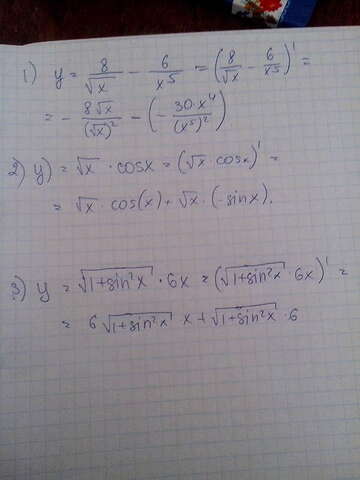 1) y = 8/√x - 6/x⁵ = (8/√x - 6/x⁵)' =
= - 8√x/(√x)² - (- 30·x⁴/(x⁵)²)
2) y) = √x · cosx = (√x cosx)' =
= √x · cos(x) + √x · (-sinx).
3) y = √(1+sin²x) · 6x = (√(1+sin²x) · 6x)' =
= 6√(1+sin²x) x + √(1+sin²x) · 6